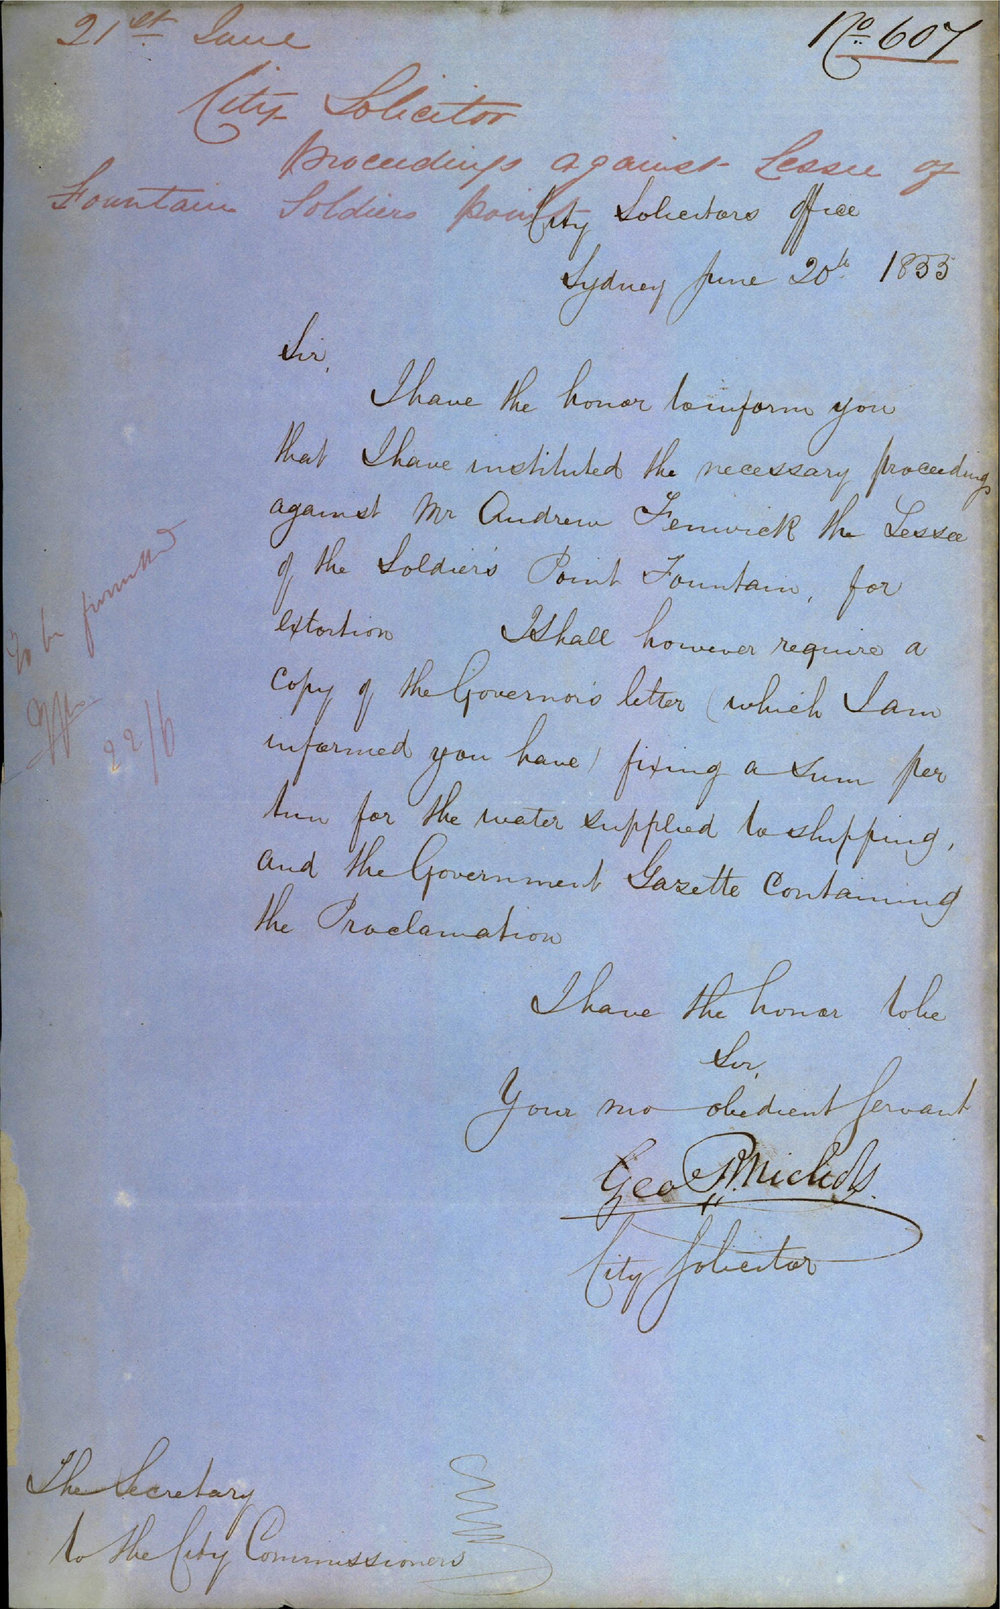 21st June
No 607
City Solicitor
proceedings against Lessee of
Fountain Soldiers point
City Solicitors office
Sydney June 20th 1855
Sir,
I have the honor to inform you
that I have instituted the necessary proceedings
against Mr Andrew Fenwick the Lessee
of the Soldier's Point Fountain, for
extortion I shall however require a
copy of the Governor's letter (which I am
informed you have) fixing a sum per
tun for the water supplied to shipping,
and the Government Gazette Containing
the Proclamation
I have the honor to be
Sir,
Your mo obedient Servant
Geo R. Nichols.
City Solicitor
To be furnished
22/6
The Secretary
to the City Commissioners